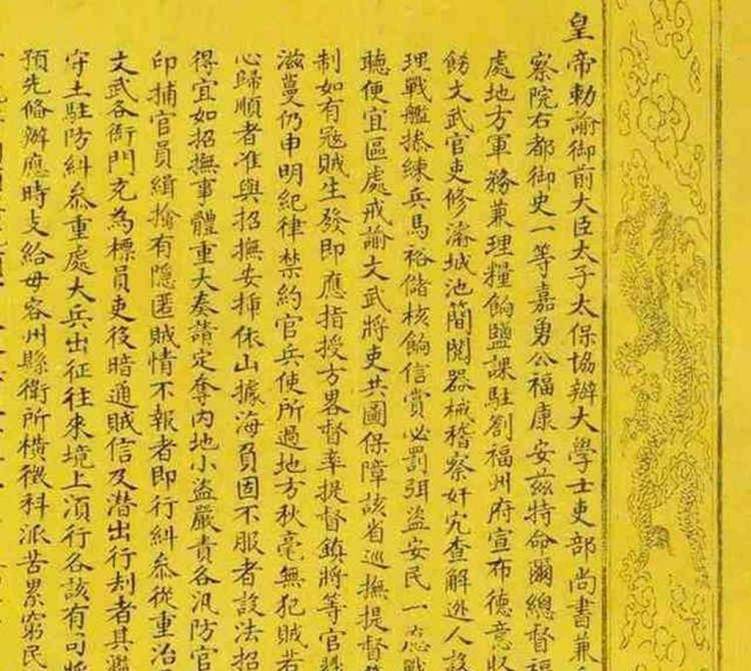 皇帝勅諭御前大臣太子太保協辦大學士吏部尚書兼
察院右都御史一等嘉勇公福康安茲特命爾總督福
處地方軍務兼理糧餉鹽課駐劄福州府宣布德意
飭文武官吏修濬城池簡閱器械稽察奸宄查解逃人
理戰艦操練兵馬裕儲核餉信賞必罰弭盜安民一應戰
聽便宜區處戒諭文武將吏共圖保障該省巡撫提督
制如有寇賊生發即應指授方畧督率提督鎮將等官
滋蔓仍申明紀律禁約官兵使所過地方秋毫無犯賊若
心歸順者准與招撫安插依山據海負固不服者設法招
得宜如招撫事體重大奏請定奪內地小盜嚴責各汛防官
印捕官員緝擒有隱匿賊情不報者即行糾參從重治
文武各衙門充為標員吏役暗通賊信及潛出行刦者其
守土駐防糾參重處大兵出征往來境上湏行各該有司將
預先偹辦應時支給毋容州縣衛所橫徵科派苦累窮民